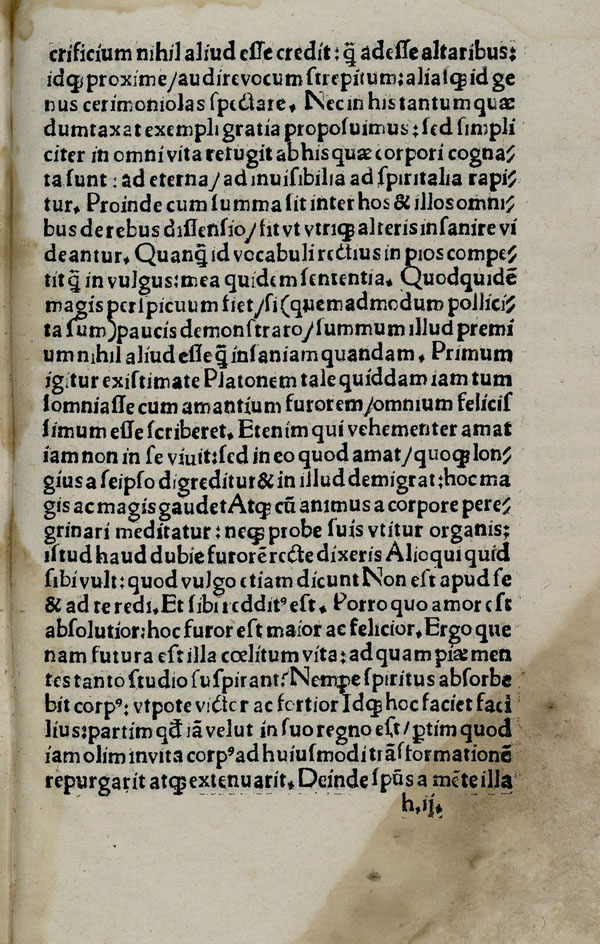 crificium nihil aliud eſſe credit: q̃ adeſſe altaribus:
idq; proxime/audire vocum ſtrepitum: aliaſq; id ge
nus cerimoniolas ſpectare. Nec in his tantum quæ
dumtaxat exempli gratia propoſuimus: ſed ſimpli
citer in omni vita refugit ab his quæ corpori cogna⸗
ta ſunt: ad eterna/ad inuiſibilia ad ſpiritalia rapi⸗
tur. Proinde cum ſumma ſit inter hos & illos omni⸗
bus de rebus diſſenſio/fit vt vtriq; alteris inſanire vi
deantur. Quanq̃ id vocabuli rectius in pios compe⸗
tit q̃ in vulgus: mea quidem ſententia. Quod quidē
magis perſpicuum fiet/ſi (quemadmodum pollici⸗
ta ſum) paucis demonſtraro/ſummum illud premi
um nihil aliud eſſe q̃ inſaniam quandam. Primum
igitur exiſtimate Platonem tale quiddam iam tum
ſomniaſſe cum amantium furorem/omnium feliciſ
ſimum eſſe ſcriberet. Etenim qui vehementer amat
iam non in ſe viuit: ſed in eo quod amat/quoq; lon⸗
gius a ſeipſo digreditur & in illud demigrat: hoc ma
gis ac magis gaudet Atq; cū animus a corpore pere⸗
grinari meditatur: neq; probe ſuis vtitur organis:
iſtud haud dubie furorē recte dixeris Alioqui quid
ſibi vult: quod vulgo etiam dicunt Non eſt apud ſe
& ad te redi. Et ſibi redditꝰ eſt. Porro quo amor eſt
abſolutior: hoc furor eſt maior ac felicior. Ergo que
nam futura eſt illa cœlitum vita: ad quam piæ men
tes tanto ſtudio ſuſpirant? Nempe ſpiritus abſorbe
bit corpꝰ: vtpote victor ac fortior Idq; hoc faciet faci
lius: partim qđ iā velut in ſuo regno eſt/ꝑtim quod
iam olim in vita corpꝰ ad huiuſmodi trāſformationē
repurgarit atq; extenuarit. Deinde ſpũs a mēte illa
h.ij.